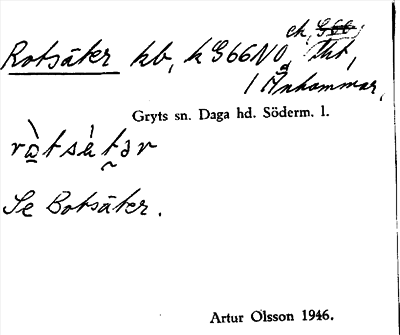 Rotsäker kb, k G66NO ek, Tht,
1 Änhammar,
Gryts sn. Daga hd. Söderm. l.
ròtsè́tər
Se Botsäker.
Artur Olsson 1946.